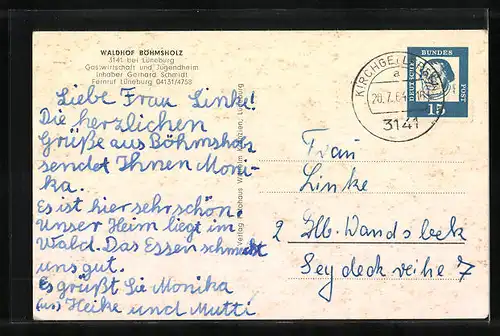 WALDHOF BÖHMSHOLZ
3141 bei Lüneburg
Gastwirtschaft und Jugendheim
Inhaber Gerhard Schmidt
Fernruf Lüneburg 04131/4758
Liebe Frau Linke!
Die herzlichen
Grüße aus Böhmsholz
sendet Ihnen Moni-
ka.
Es ist hier sehr schön.
Unser Heim liegt im
Wald. Das Essen schmeckt
uns gut.
Es grüßt Sie Monika
Heike und Mutti
Verlag Photohaus Wilhelm Lüneburg
20.7.64
3141
DEUTSCHE
BUNDES
POST
15
Frau
Linke
2 Hbg. Wandsbek
Seydeckreihe 7